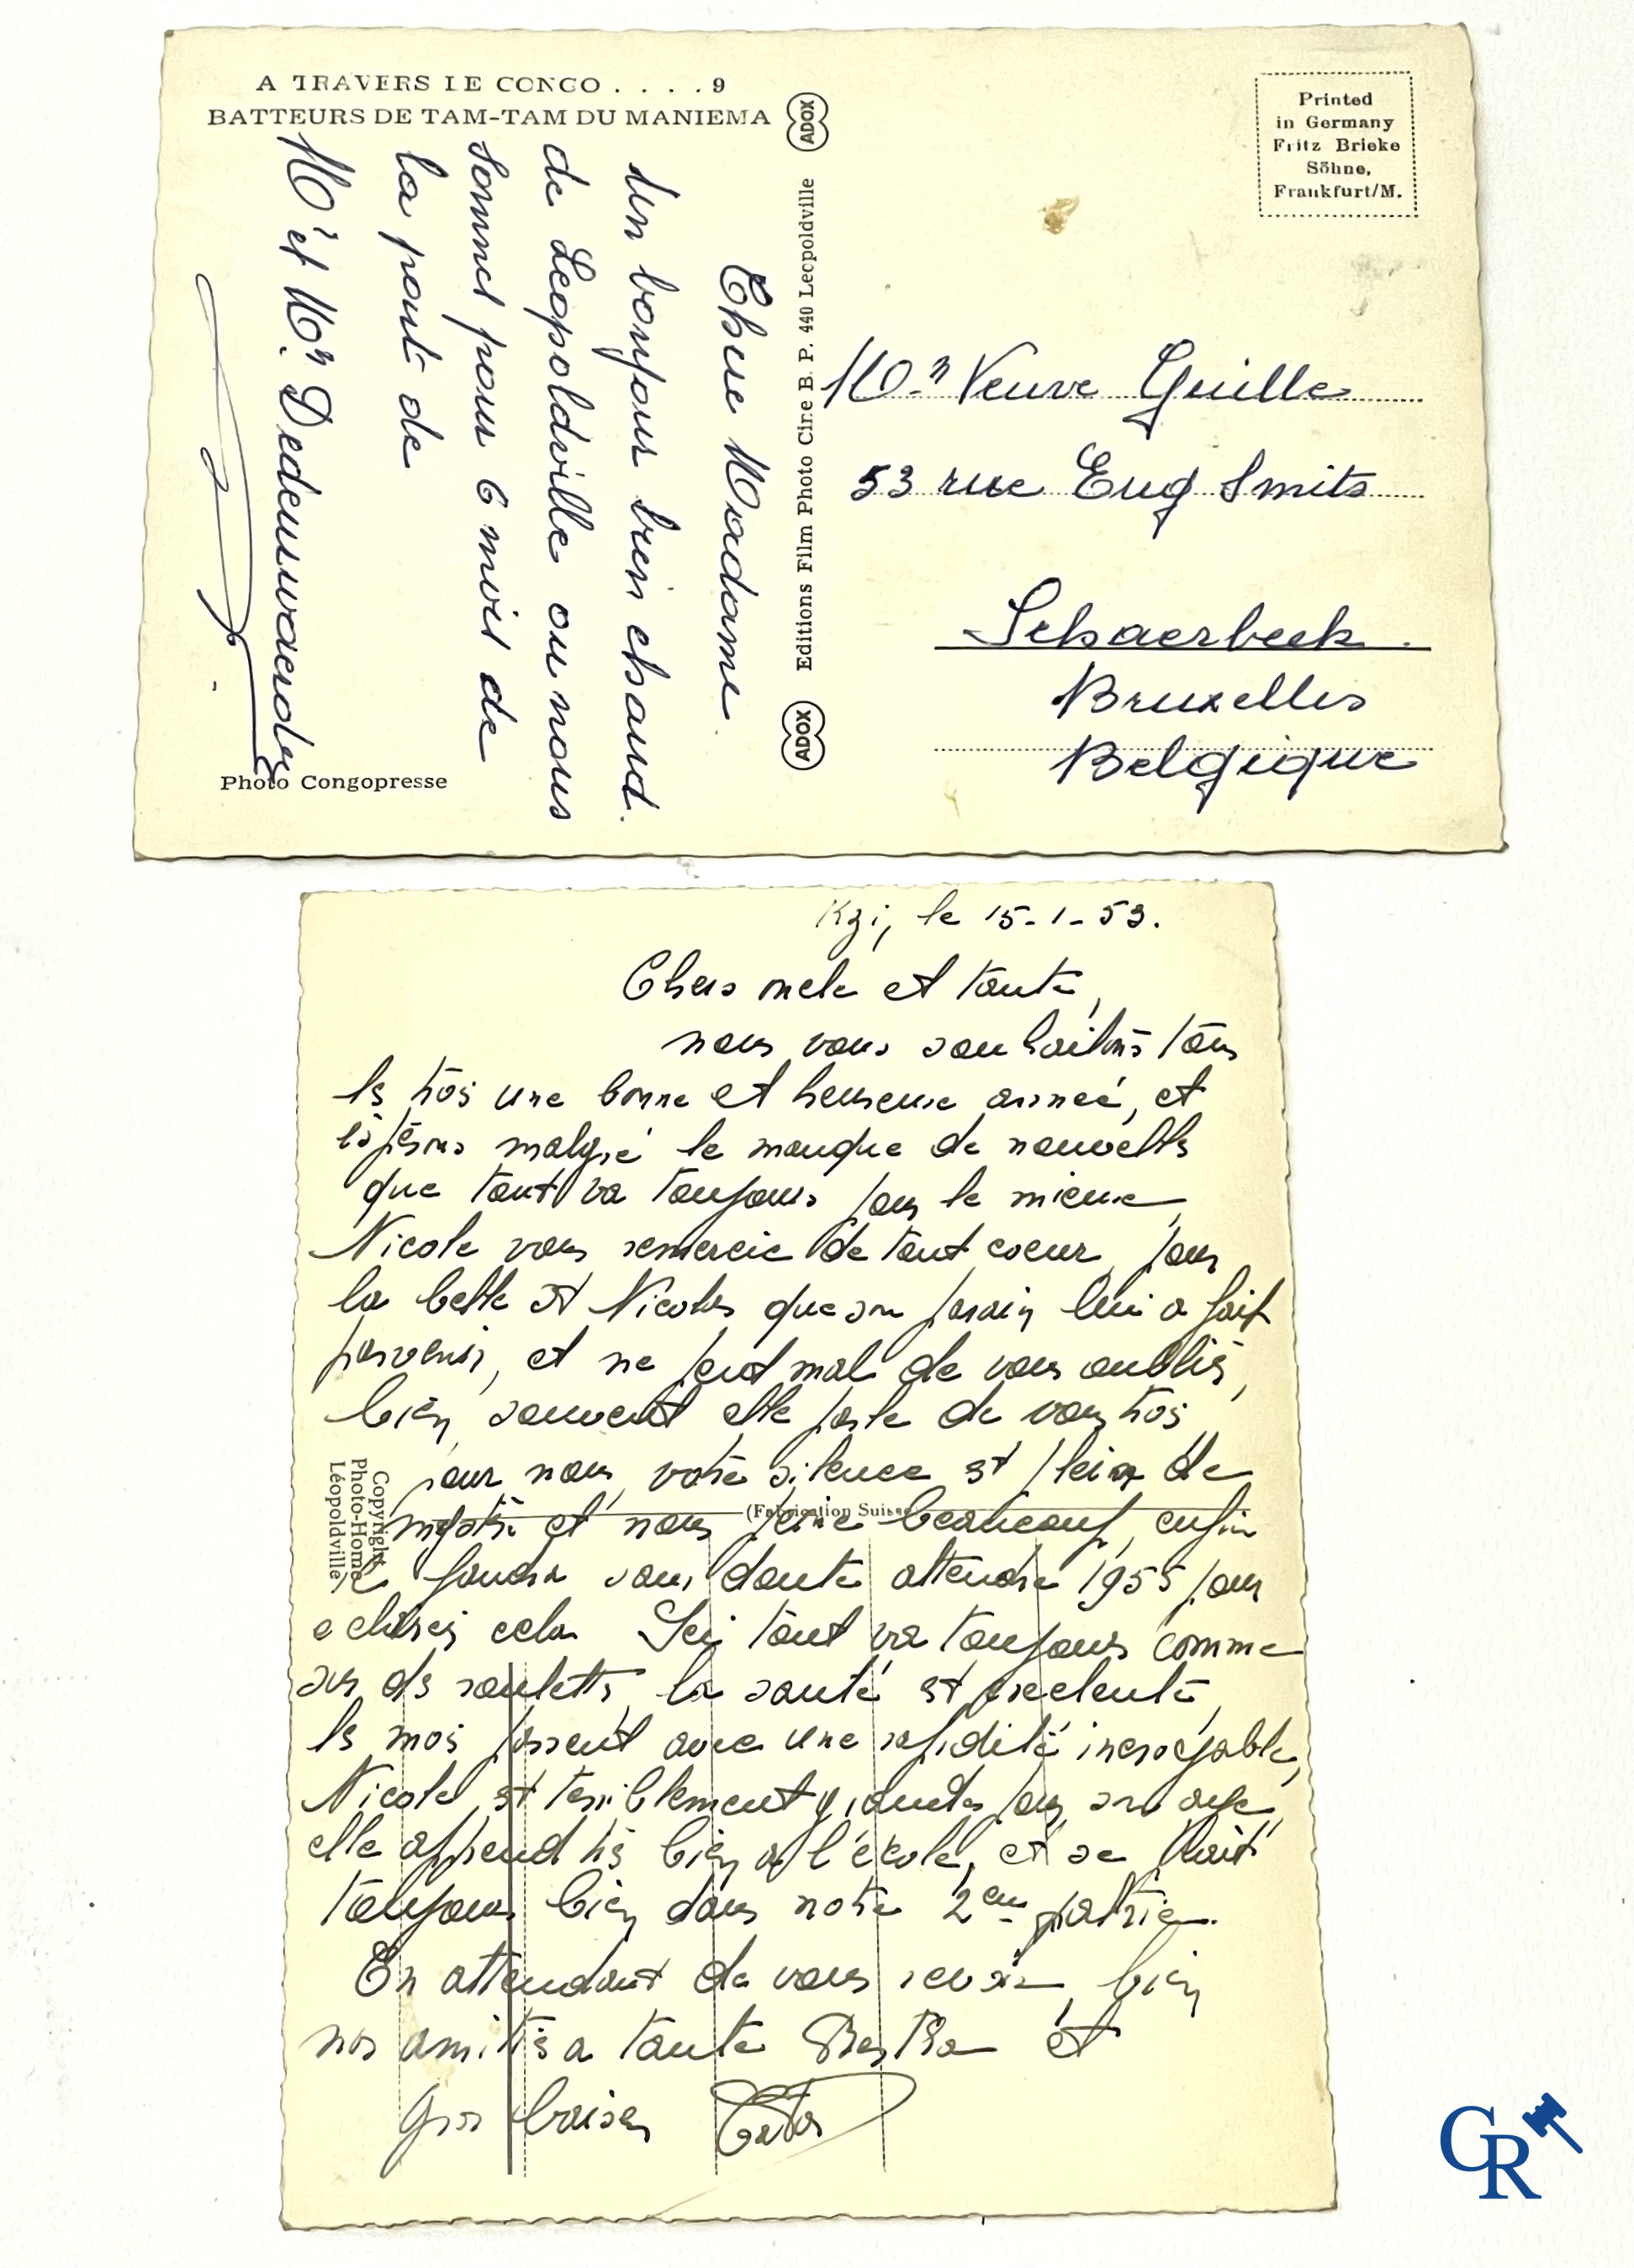 A TRAVERS LE CONGO . . . . 9
BATTEURS DE TAM-TAM DU MANIEMA
Chere Madame
un bonjour bien chaud.
de Leopoldville ou nous
sommes pour 6 mois de
la part de
Mr et Mm
Photo Congopresse
ADOX
Editions Film Photo Cine B. P. 440 Leopoldville
ADOX
Printed
in Germany
Fritz Brieke
Söhne,
Frankfurt/M.
Mm Veuve Guille
53 rue Eug Smits
Schaerbeek
Bruxelles
Belgique
le 15-1-53.
Chers oncle et tante,
nous vous souhaitons tous
les trois une bonne et heureuse année, et
espérons malgré le manque de nouvelles
que tout va toujours pour le mieux
Nicole vous remercie de tout coeur pour
la belle St Nicolas que son parain lui a fait
parvenir, et ne peut mal de vous oublier,
bien souvent elle parle de vous trois
pour nous votre silence est plein de
mystère et nous peine beaucoup, enfin
faudra sans doute attendre 1955 pour
eclaircir cela Ici tout va toujours comme
sur des roulettes la santé est excelente
les mois passent avec une rapidité incroyable,
Nicole est terriblement grande pour son age
elle apprend très bien a l'école, et se plait
toujours bien dans notre 2em patrie.
En attendant de vous revoir, bien
nos amitiés a tante Bertha et
gros baisers
Copyright
Photo-Home
Léopoldville
(Fabrication Suisse)
CR